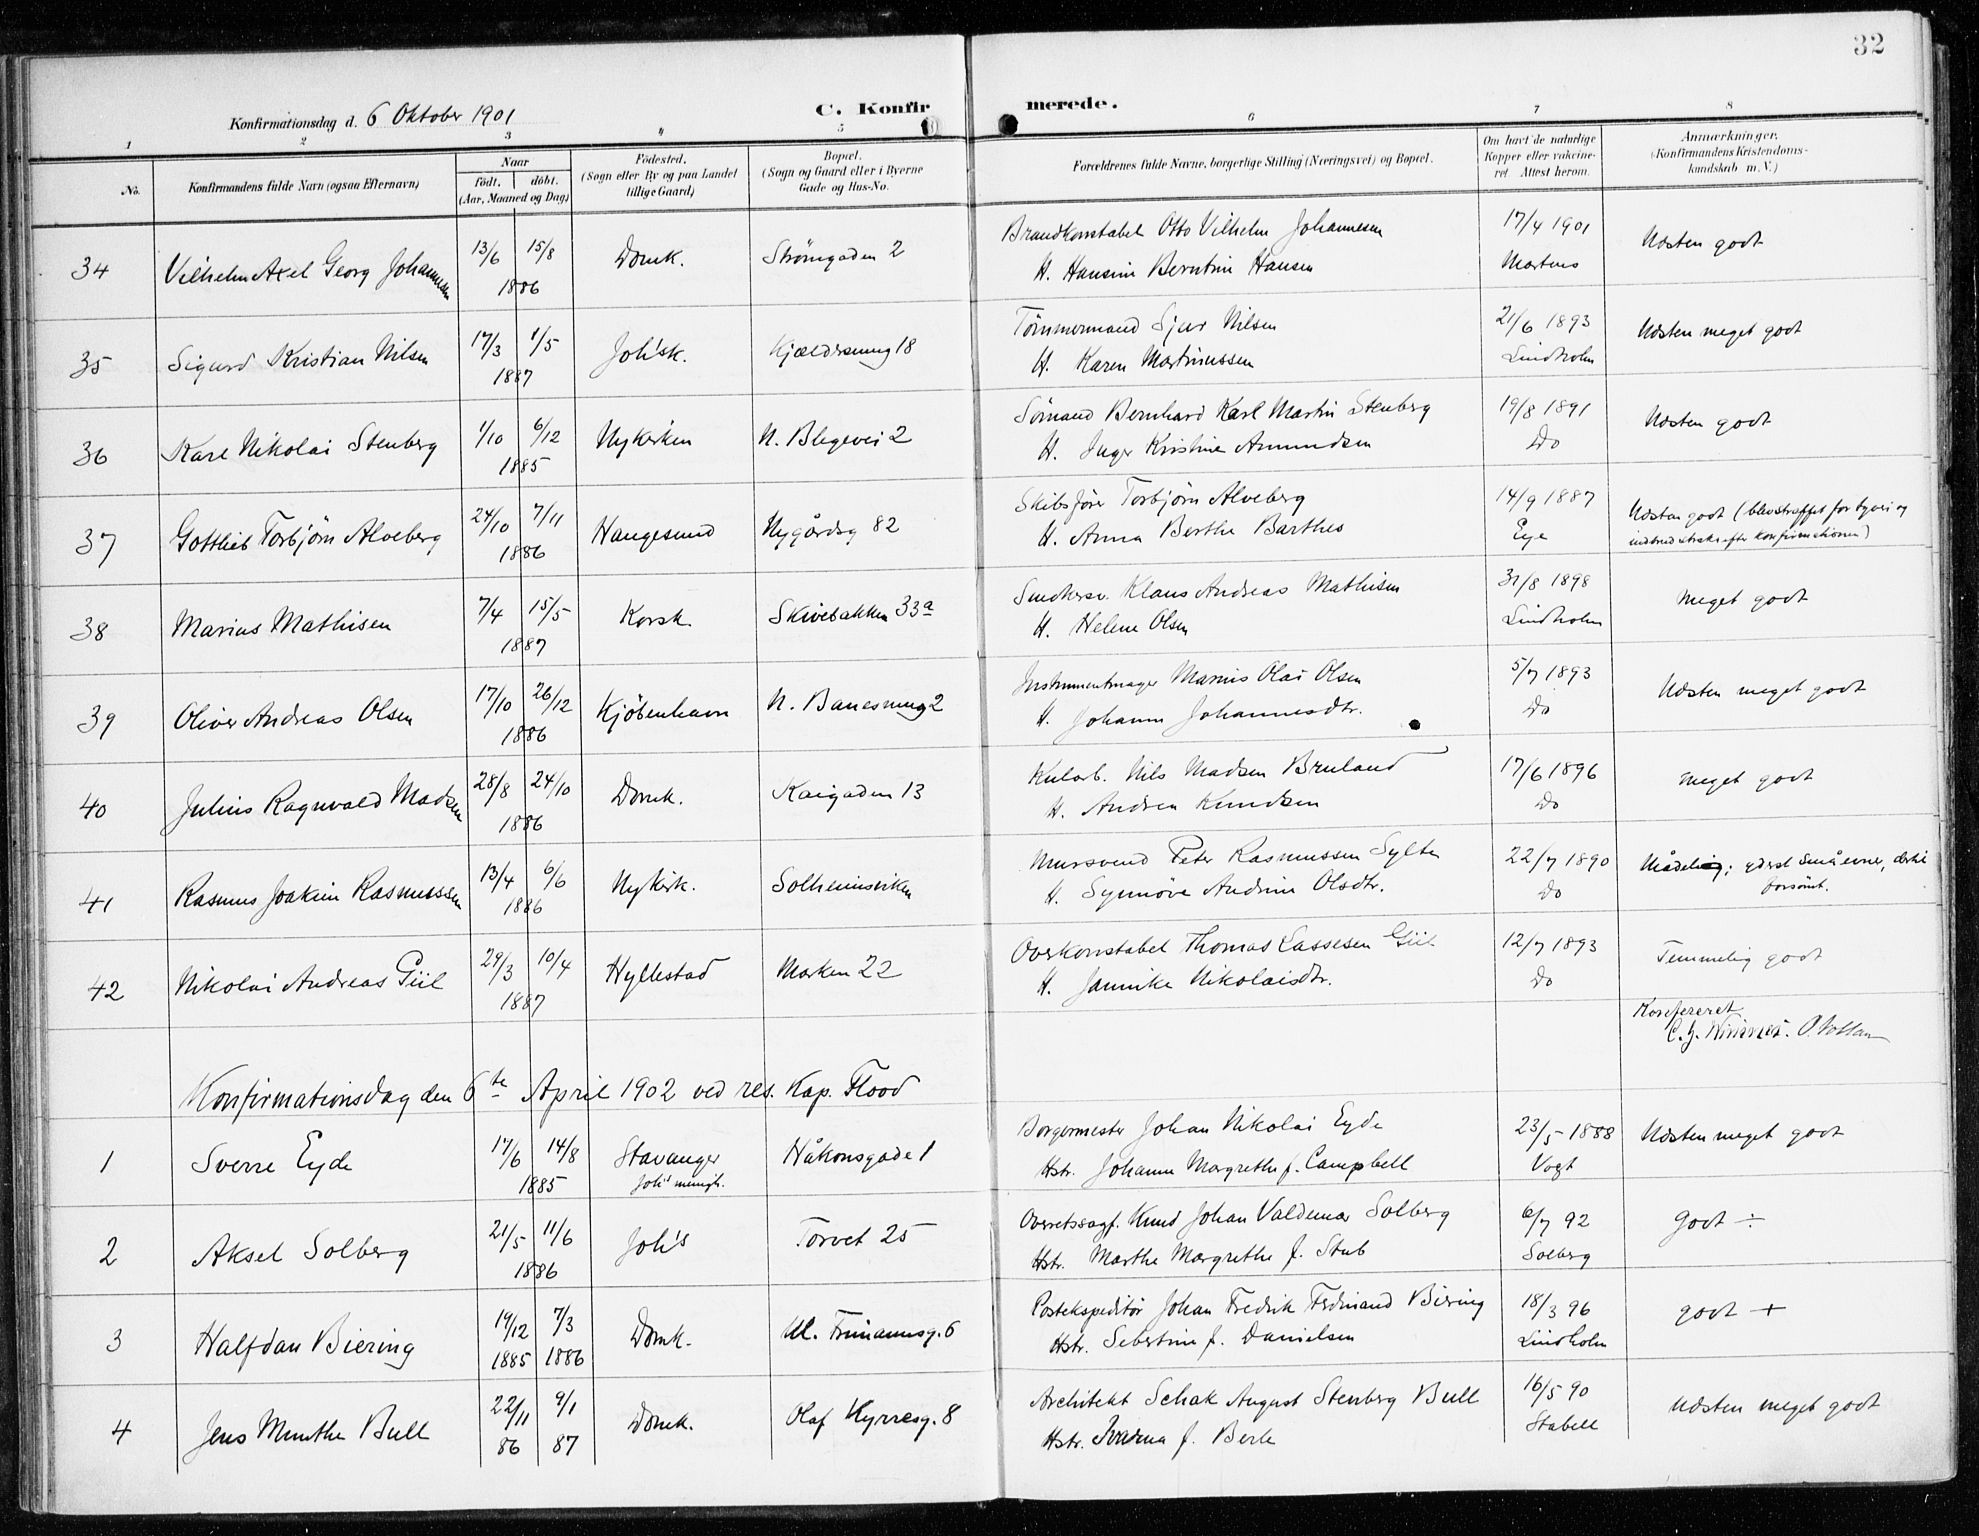 32
Konfirmationsdag d. 6 Oktober 1901
C. Konfirmerede.
1 2 3 4 5 6 7 8
No.
Konfirmandens fulde Navn (ogsaa Efternavn)
Naar
født. døbt.
(Aar, Maaned og Dag)
Fødested.
(Sogn eller By og paa Landet
tillige Gaard)
Bopæl.
(Sogn og Gaard eller i Byerne
Gade og Hus-No.
Forældrenes fulde Navne, borgerlige Stilling (Næringsvei) og Bopæl.
Om havt de naturlige
Kopper eller vakcine-
ret. Attest herom.
Anmærkninger.
(Konfirmandens Kristendoms-
kundskab m. V.)
34 Vilhelm Axel Georg Johannesen 13/6 15/8 1886 Domk. Strømgaden 2
Brandkonstabel Otto Vilhelm Johannesen 17/4 1901 Næsten godt
H. Hansine Berntine Hansen Martens
35 Sigurd Kristian Nilsen 17/3 1/5 1887 Joh'sk. Kjældersmug 18
Tømmermand Sjur Nilsen 21/6 1893 Næsten meget godt
H. Karen Martinussen Lindholm
36 Karl Nikolai Stenberg 1/10 6/12 1885 Nykirken N. Blegevei 2
Sømand Bernhard Karl Martin Stenberg 19/8 1891 Næsten godt
H. Inger Kristine Amundsen Do
37 Gottlieb Torbjørn Alveberg 24/10 7/11 1886 Haugesund Nygårdsg 82
Skibsfører Torbjørn Alveberg 14/9 1887 Næsten godt (blev straffet for tyveri og
H. Anna Berthe Barthes Eye indbrud straks efter konfirmationen)
38 Marius Mathisen 7/4 15/5 1887 Korsk. Skivebakken 33a
Snedkersv. Klaus Andreas Mathisen 31/8 1898 Meget godt
H. Helene Olsen Lindholm
39 Oliver Andreas Olsen 17/10 26/12 1886 Kjøbenhavn N. Banesmug 2
Instrumentmager Marius Olai Olsen 5/7 1893 Næsten meget godt
H. Johanne Johannesdtr. Do
40 Julius Ragnvald Madsen 28/8 24/10 1886 Domk. Kaigaden 13
Kularb. Nils Madsen Bruland 17/6 1896 Meget godt
H. Andrea Knudsen Do
41 Rasmus Joakim Rasmussen 13/4 6/6 1886 Nykirk. Solheimsviken
Mursvend Peter Rasmussen Sylte 22/7 1890 Mådelig; yderst små evner, dertil
H. Synnøve Andrine Olsdtr. Do forsømt.
42 Nikolai Andreas Giil 29/3 10/4 1887 Hyllestad Marken 22
Overkonstabel Thomas Lassesen Giil 12/7 1893 Temmelig godt
H. Jannike Nikolaisdtr. Do
Konfereret
Konfirmationsdag den 6te April 1902 ved res. Kap. Flood
1 Sverre Eyde 17/6 14/8 1885 Stavanger Håkonsgade 1
Joh's menigh.
Borgermester Johan Nikolai Eyde 23/5 1888 Næsten meget godt
Hstr. Johanne Margrethe f. Campbell Vogt
2 Aksel Solberg 21/5 11/6 1886 Joh's Torvet 25
Overretssagf. Knud Johan Valdemar Solberg 6/7 92 Godt ÷
Hstr. Marthe Margrethe f. Stub Solberg
3 Halfdan Biering 19/12 1885 7/3 1886 Domk. Kl. Frimannsg. 6
Postekspeditør Johan Fredrik Ferdinand Biering 18/3 96 godt +
Hstr. Sebertine f. Danielsen Lindholm
4 Jens Munthe Bull 22/11 86 9/1 87 Domk. Olaf Kyrresg. 8
Architekt Schak August Stenberg Bull 16/5 90 Næsten meget godt
Hstr. Ivarna f. Berle Stabell